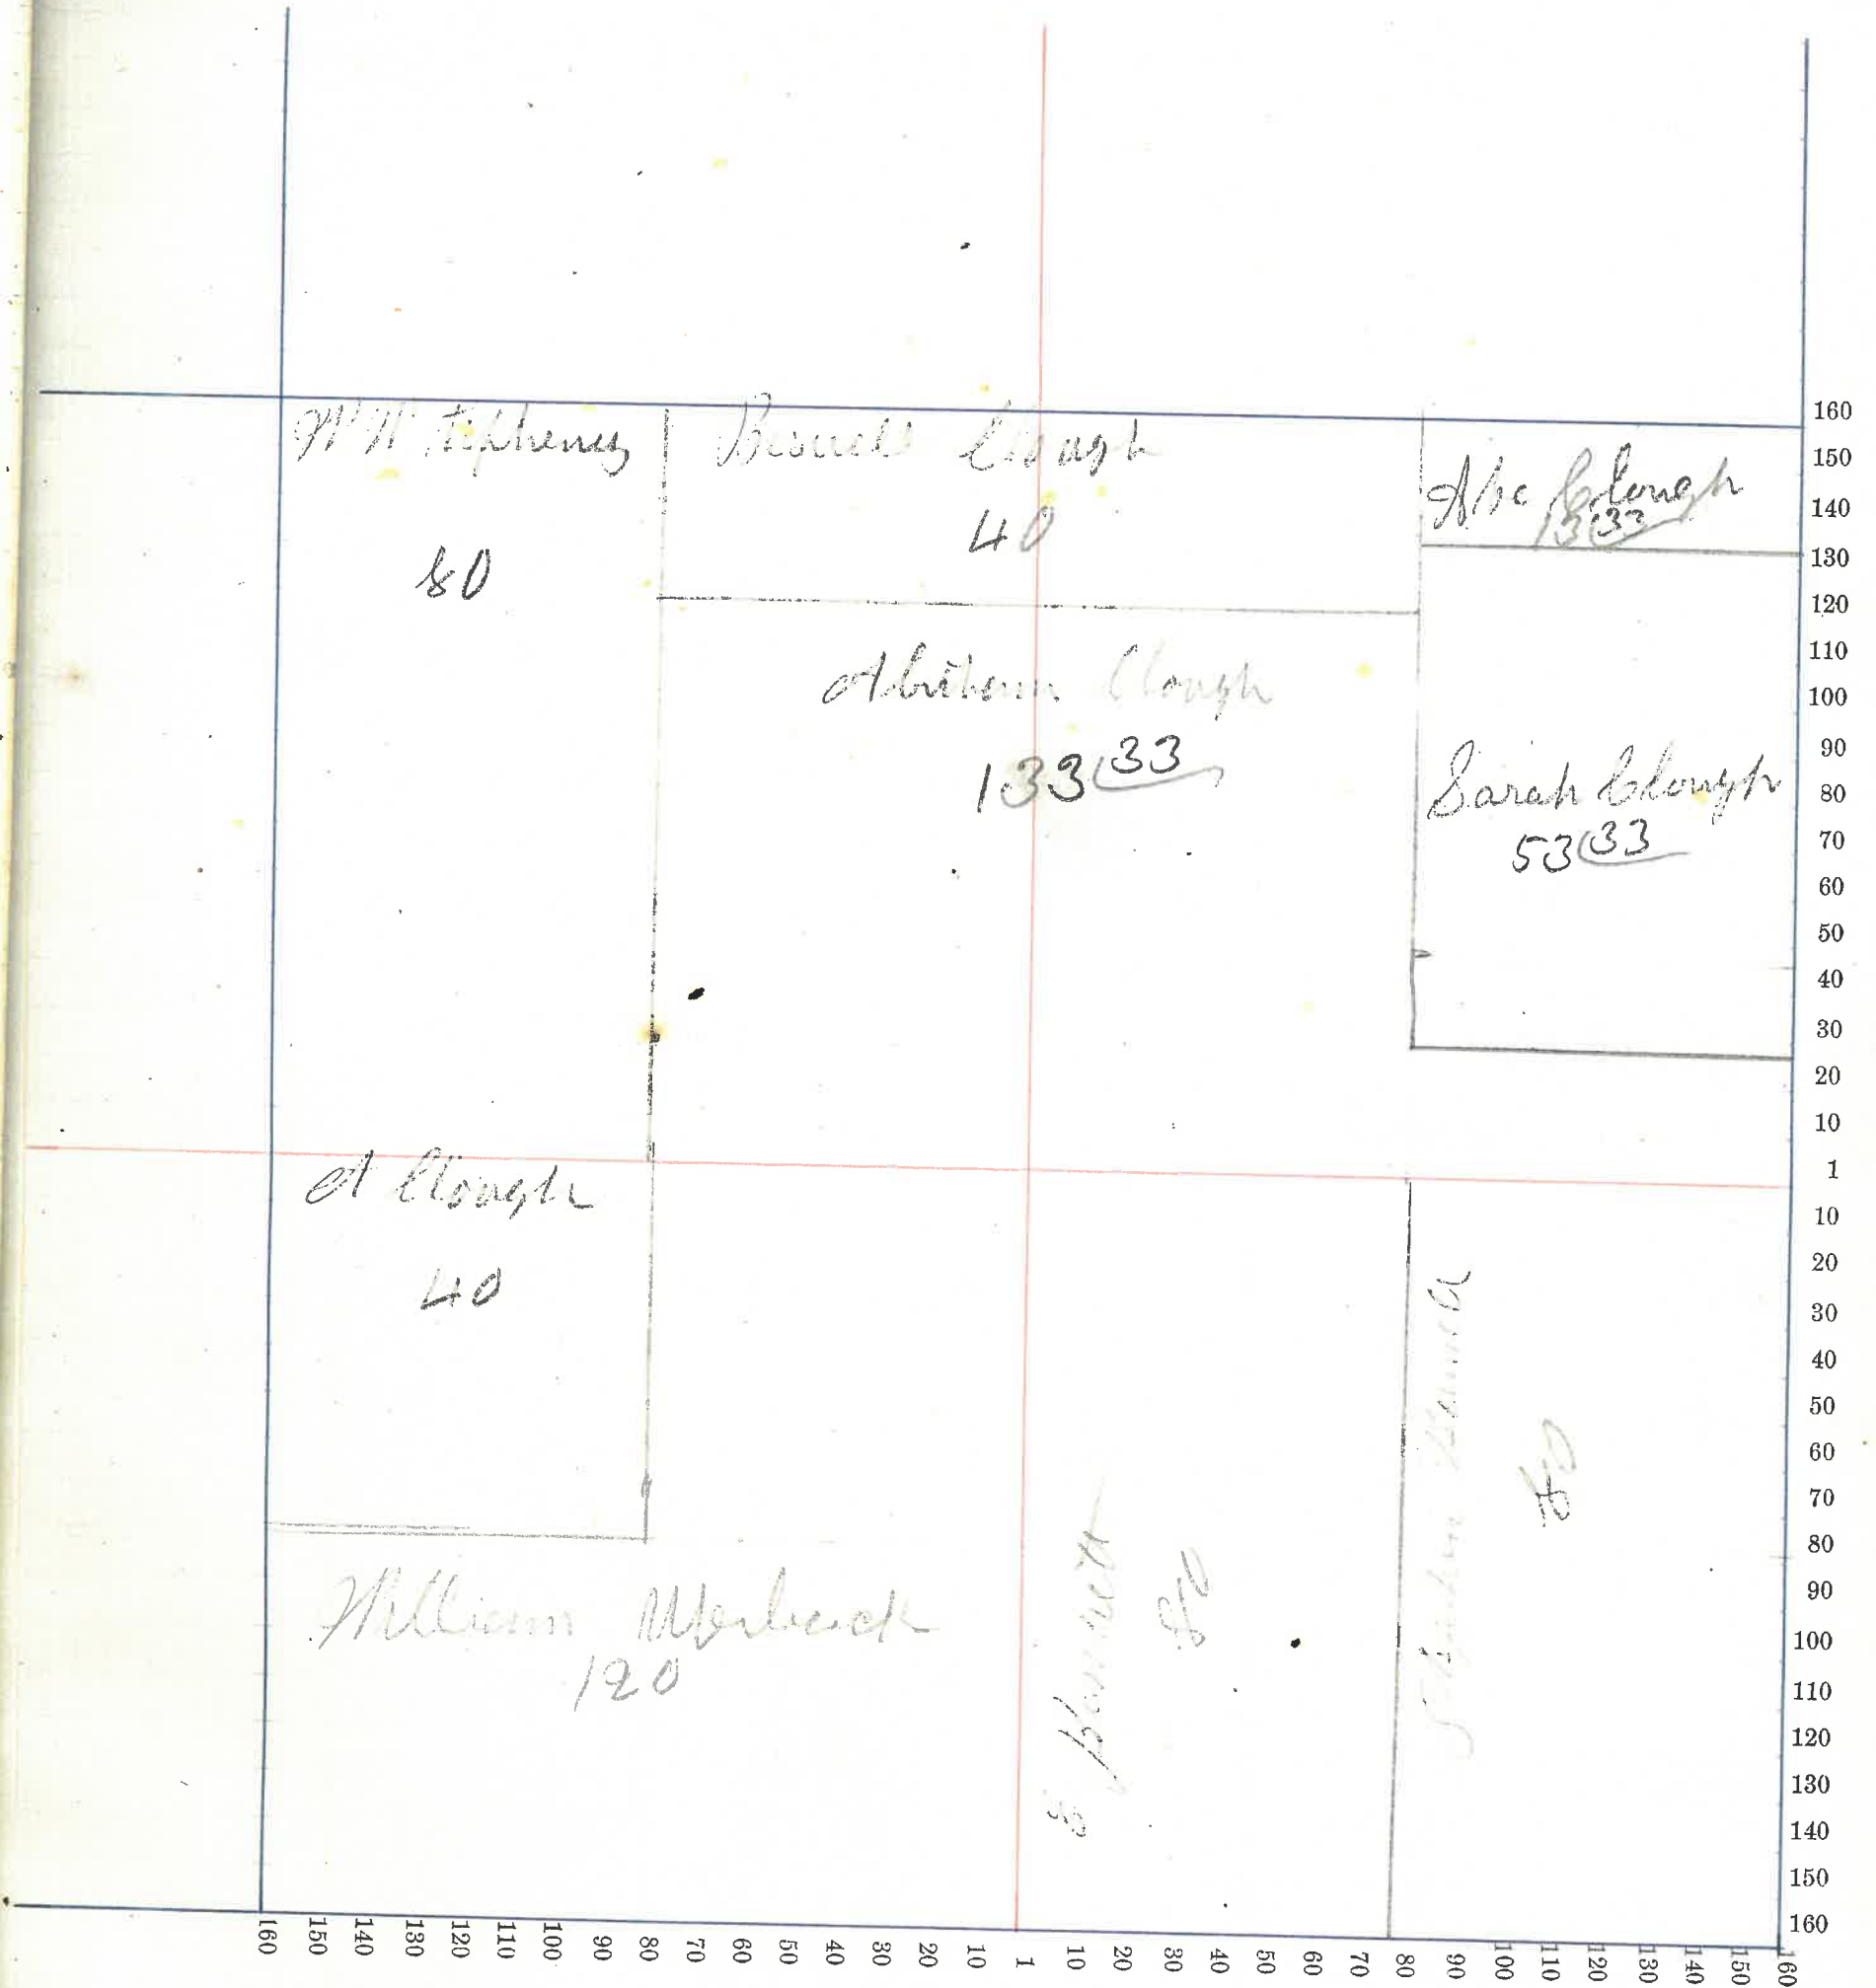 Clough
40
Abe Clough
13 33
80
Clough
133 33
Sarah Clough
53 33
A Clough
40
William
120
80
80
160
150
140
130
120
110
100
90
80
70
60
50
40
30
20
10
1
10
20
30
40
50
60
70
80
90
100
110
120
130
140
150
160
160 150 140 130 120 110 100 90 80 70 60 50 40 30 20 10 1 10 20 30 40 50 60 70 80 90 100 110 120 130 140 150 160